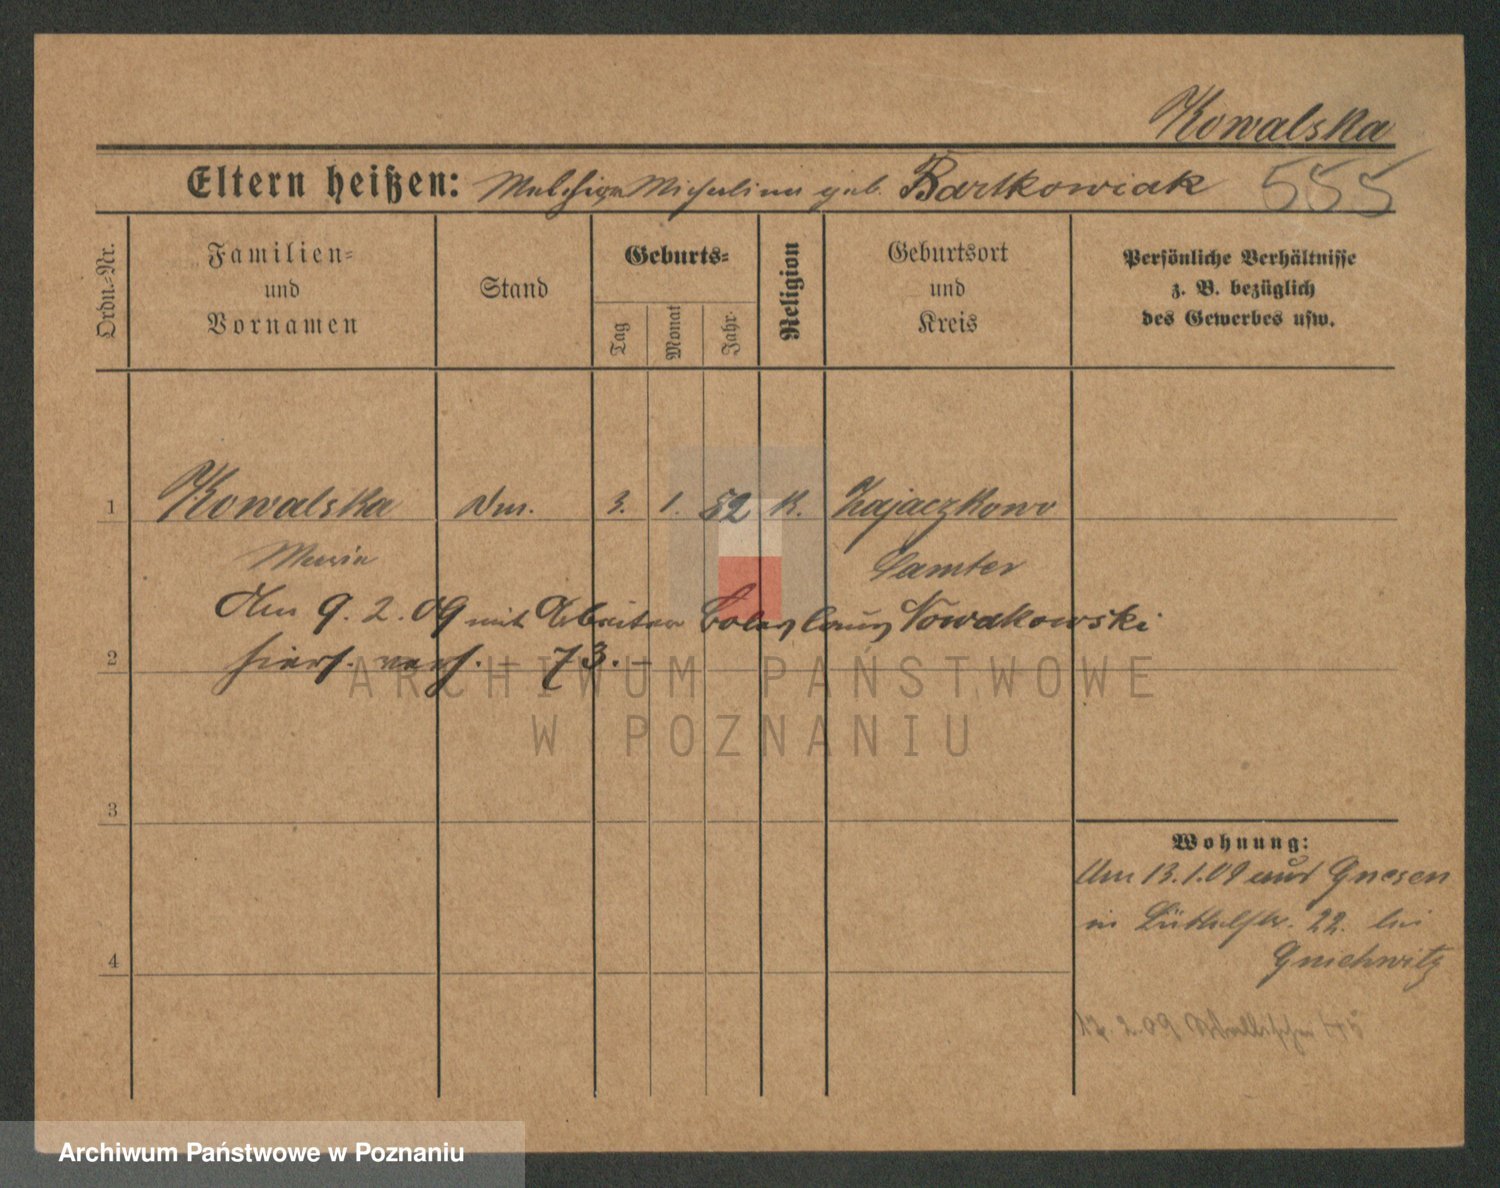 Kowalska
Eltern heißen: Michalina geb. Bartkowiak 555
Ordn.-Nr.
Familien-
und
Vornamen
Stand
Geburts-
Tag
Monat
Jahr
Religion
Geburtsort
und
Kreis
Persönliche Verhältnisse
z. B. bezüglich
des Gewerbes usw.
1 Kowalska 3. 1. 52 K. Zajaczkowo
Maria Samter
Am 9. 2. 09 mit Arbeiter Nowakowski
2 hiers. verh. – 73. –
3
4
Wohnung:
Am 13.1.09 aus Gnesen
in 22. bei
Gnichwitz
17. 2. 09
ARCHIWUM PAŃSTWOWE
W POZNANIU
Archiwum Państwowe w Poznaniu